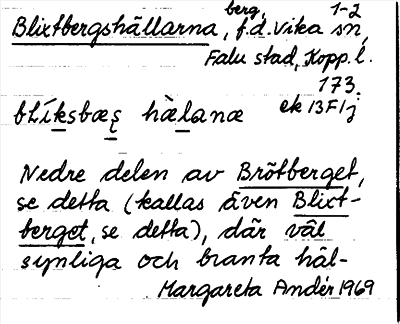 berg, 1-2
Blixtbergshällarna, f.d. Vika sn,
Falu stad, Kopp. l.
173.
blíksbæș hæ̀lanæ ek 13F1j
Nedre delen av Brötberget,
se detta (kallas även Blixt-
berget, se detta), där väl
synliga och branta häl-
Margareta Andér 1969